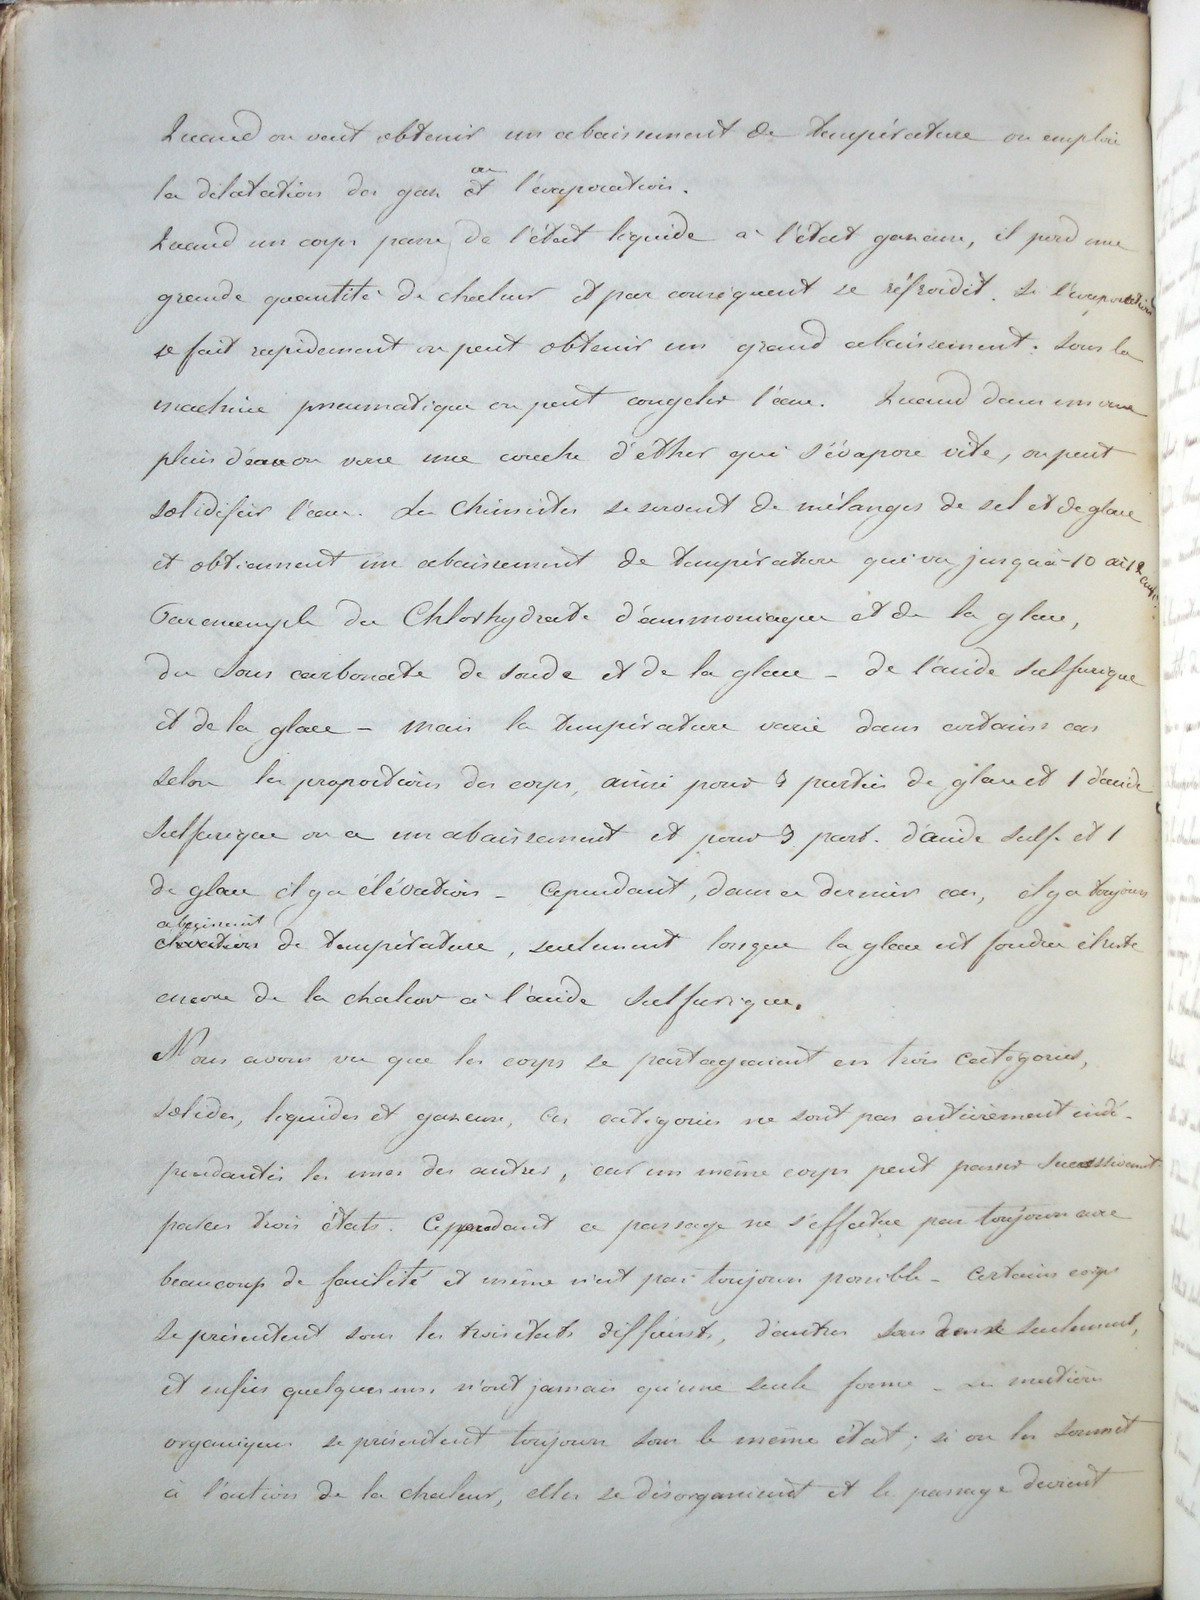 Quand on veut obtenir un abaissement de température on emploie
la dilatation des gaz et ou l'évaporation.
Quand un corps passe de l'état liquide à l'état gazeux, il perd une
grande quantité de chaleur et par conséquent se refroidit. Si l'évaporation
se fait rapidement on peut obtenir un grand abaissement. Sous la
machine pneumatique on peut congeler l'eau. Quand dans un verre
plein d'eau on verse une couche d'éther qui s'évapore vite, on peut
solidifier l'eau. Les Chimistes se servent de mélanges de sel et de glace
et obtiennent un abaissement de température qui va jusqu'à -10 à 12
Par exemple du Chlorhydrate d'ammoniaque et de la glace,
du Sous carbonate de soude et de la glace - de l'acide sulfurique
et de la glace - mais la température varie dans certains cas
selon les proportions des corps, ainsi pour 3 parties de glace et 1 d'acide
sulfurique on a un abaissement et pour 3 part. d'acide sulf. et 1
de glace il y a élévation - Cependant, dans ce dernier cas, il y a toujours
abaissement
élévation de température, seulement lorsque la glace est fondue il reste
encore de la chaleur à l'acide sulfurique.
Nous avons vu que les corps se partageaient en trois catégories,
solides, liquides et gazeux, Ces catégories ne sont pas entièrement indé-
pendantes les unes des autres, car un même corps peut passer successivement
par les trois états. Cependant ce passage ne s'effectue pas toujours avec
beaucoup de facilité et même n'est pas toujours possible - Certains corps
se présentent sous les trois états différents, d'autres sous deux seulement,
et enfin quelques uns n'ont jamais qu'une seule forme - Les matières
organiques se présentent toujours sous le même état ; si on les soumet
à l'action de la chaleur, elles se désorganisent et le passage devient